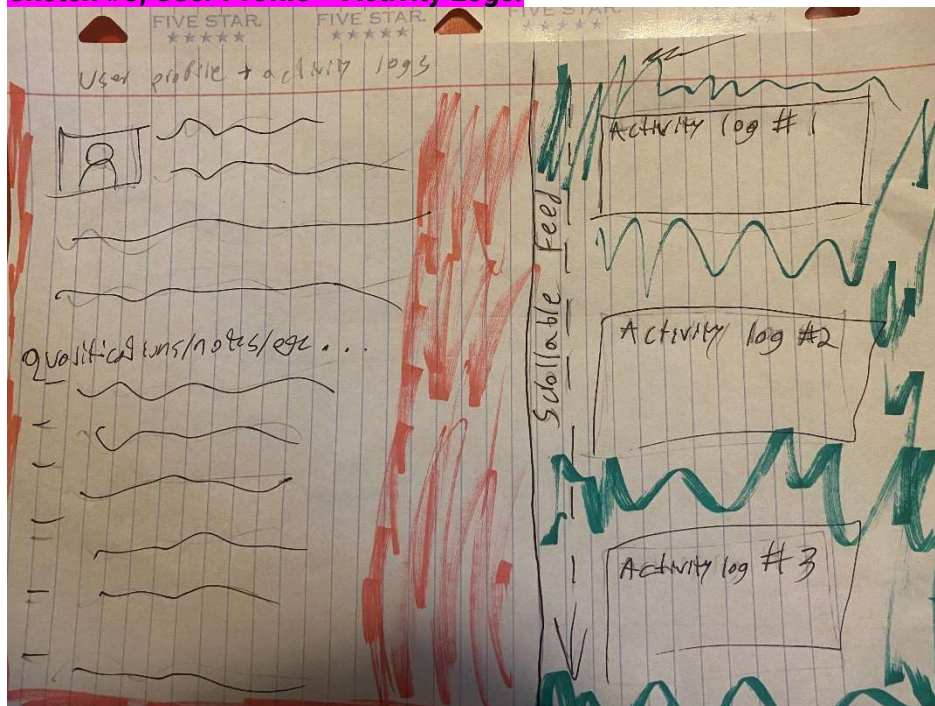 FIVE STAR.
FIVE STAR.
FIVE STAR
User profile + activity logs
Qualifications/notes/etc...
Scrollable Feed
Activity log # 1
Activity log #2
Activity log #3